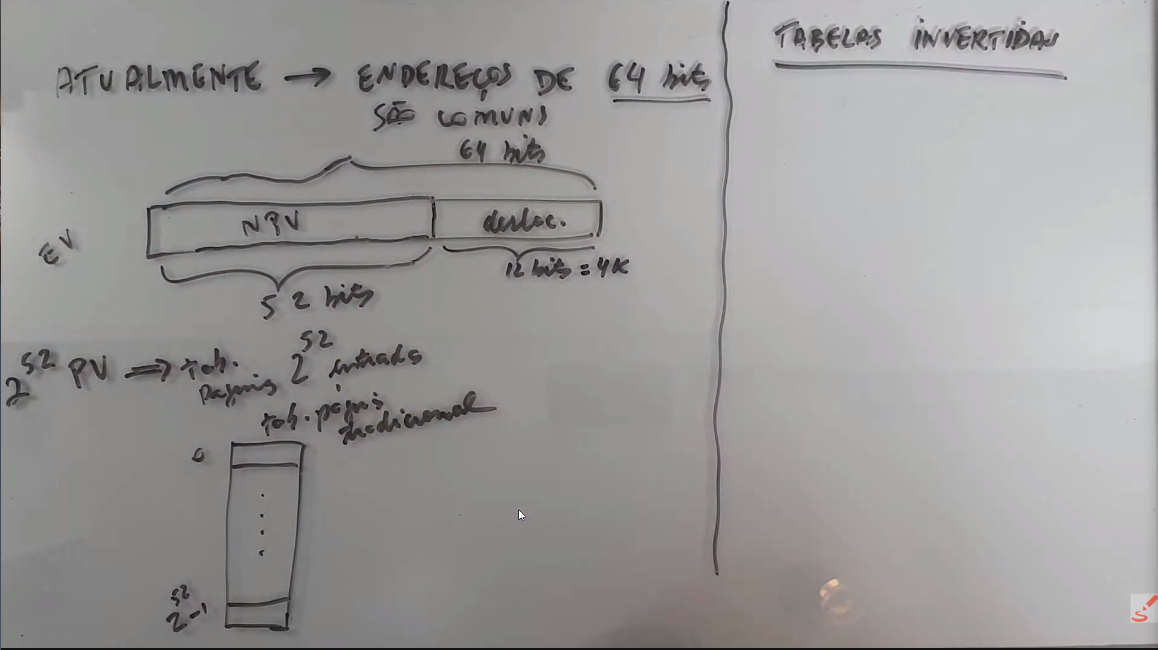 ATUALMENTE → ENDEREÇOS DE 64 bits
SÃO COMUNS
64 bits
EV
NPV
desloc.
12 bits = 4K
52 bits
2^52 PV => tab. páginas 2^52 entradas
tab. págs tradicional
0
2^52-1
TABELAS INVERTIDAS